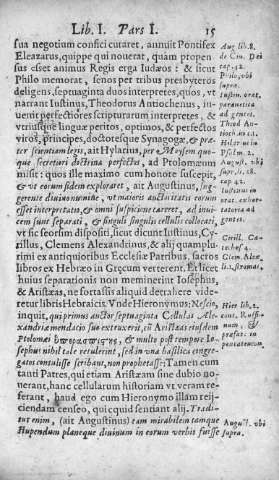 Lib. I. Pars I. 15
sua negotium confici curaret, annuit Pontifex
Eleazarus, quippe qui nouerat, quàm propen
sus esset animus Regis erga Iudæos: & sicut
Philo memorat, senos per tribus presbyteros
deligens, septuaginta duos interpretes, quos, vt
narrant Iustinus, Theodorus Antiochenus, in-
uenit perfectiores scripturarum interpretes, &
vtriusque linguæ peritos, optimos, & perfectos
viros, principes, doctoresque Synagogæ, & præ-
ter scientiam legis, ait Hylarius, per Moysem quo-
que secretiori doctrina perfectos, ad Ptolomæum
misit: quos ille maximo cum honore suscepit,
& vt eorum fidem exploraret, ait Augustinus, sin-
gente diuino numine, vt maioris auctoritatis eorum
esset interpretatio, & omni suspicione carceret, ad inui-
cem sunt separati, & singuli singulis cellulis collocati,
vt sic seorsim dispositi, sicut dicunt Iustinus, Cy-
rillus, Clemens Alexandrinus, & alij quamplu-
rimi ex antiquioribus Ecclesiæ Patribus, sacros
libros ex Hebræo in Græcum verterent. Et licet
huius separationis non meminerint Iosephus,
& Aristæas, ne fortassis aliquid detrahere vide-
retur libris Hebraicis. Vnde Hieronymus: Nescio,
inquit, qui primus auctor septuaginta Cellulas Alex-
andriæ mendacio suo extruxerit, cū Aristæas eiusdem
Ptolomæi & multo post tempore Io-
sephus nihil tale retulerint, sed in vna basilica congre-
gatos contulisse scribant, non prophetasse: Tamen cum
tanti Patres, qui etiam Aristæam sine dubio no-
uerant, hanc cellularum historiam vt veram re-
ferant, haud ego cum Hieronymo illam reij-
ciendam censeo, qui ecquid sentiant alij. Tradi-
tur enim, (ait Augustinus) tam mirabilem tamque
stupendum planeque diuinum in eorum verbis fuisse
Aug lib.8.
de Ciu. Dei
cap.
Philo, vbi
supra.
Iustin. orat.
parænetica
ad gentes.
Theod. An-
Hilar. in
Psalm. 2.
August. vbi
supra, li. 18.
cap. 42.
Iustinus in
orat. exhor-
tatoria ad
gentes.
Cirill. Ca-
teches. 4.
Clem. Alex.
li.1. stromat.
Hier lib. 2.
cont. Ruffi-
num, &
præfat. in
pentateuch.
August. vbi
supra.